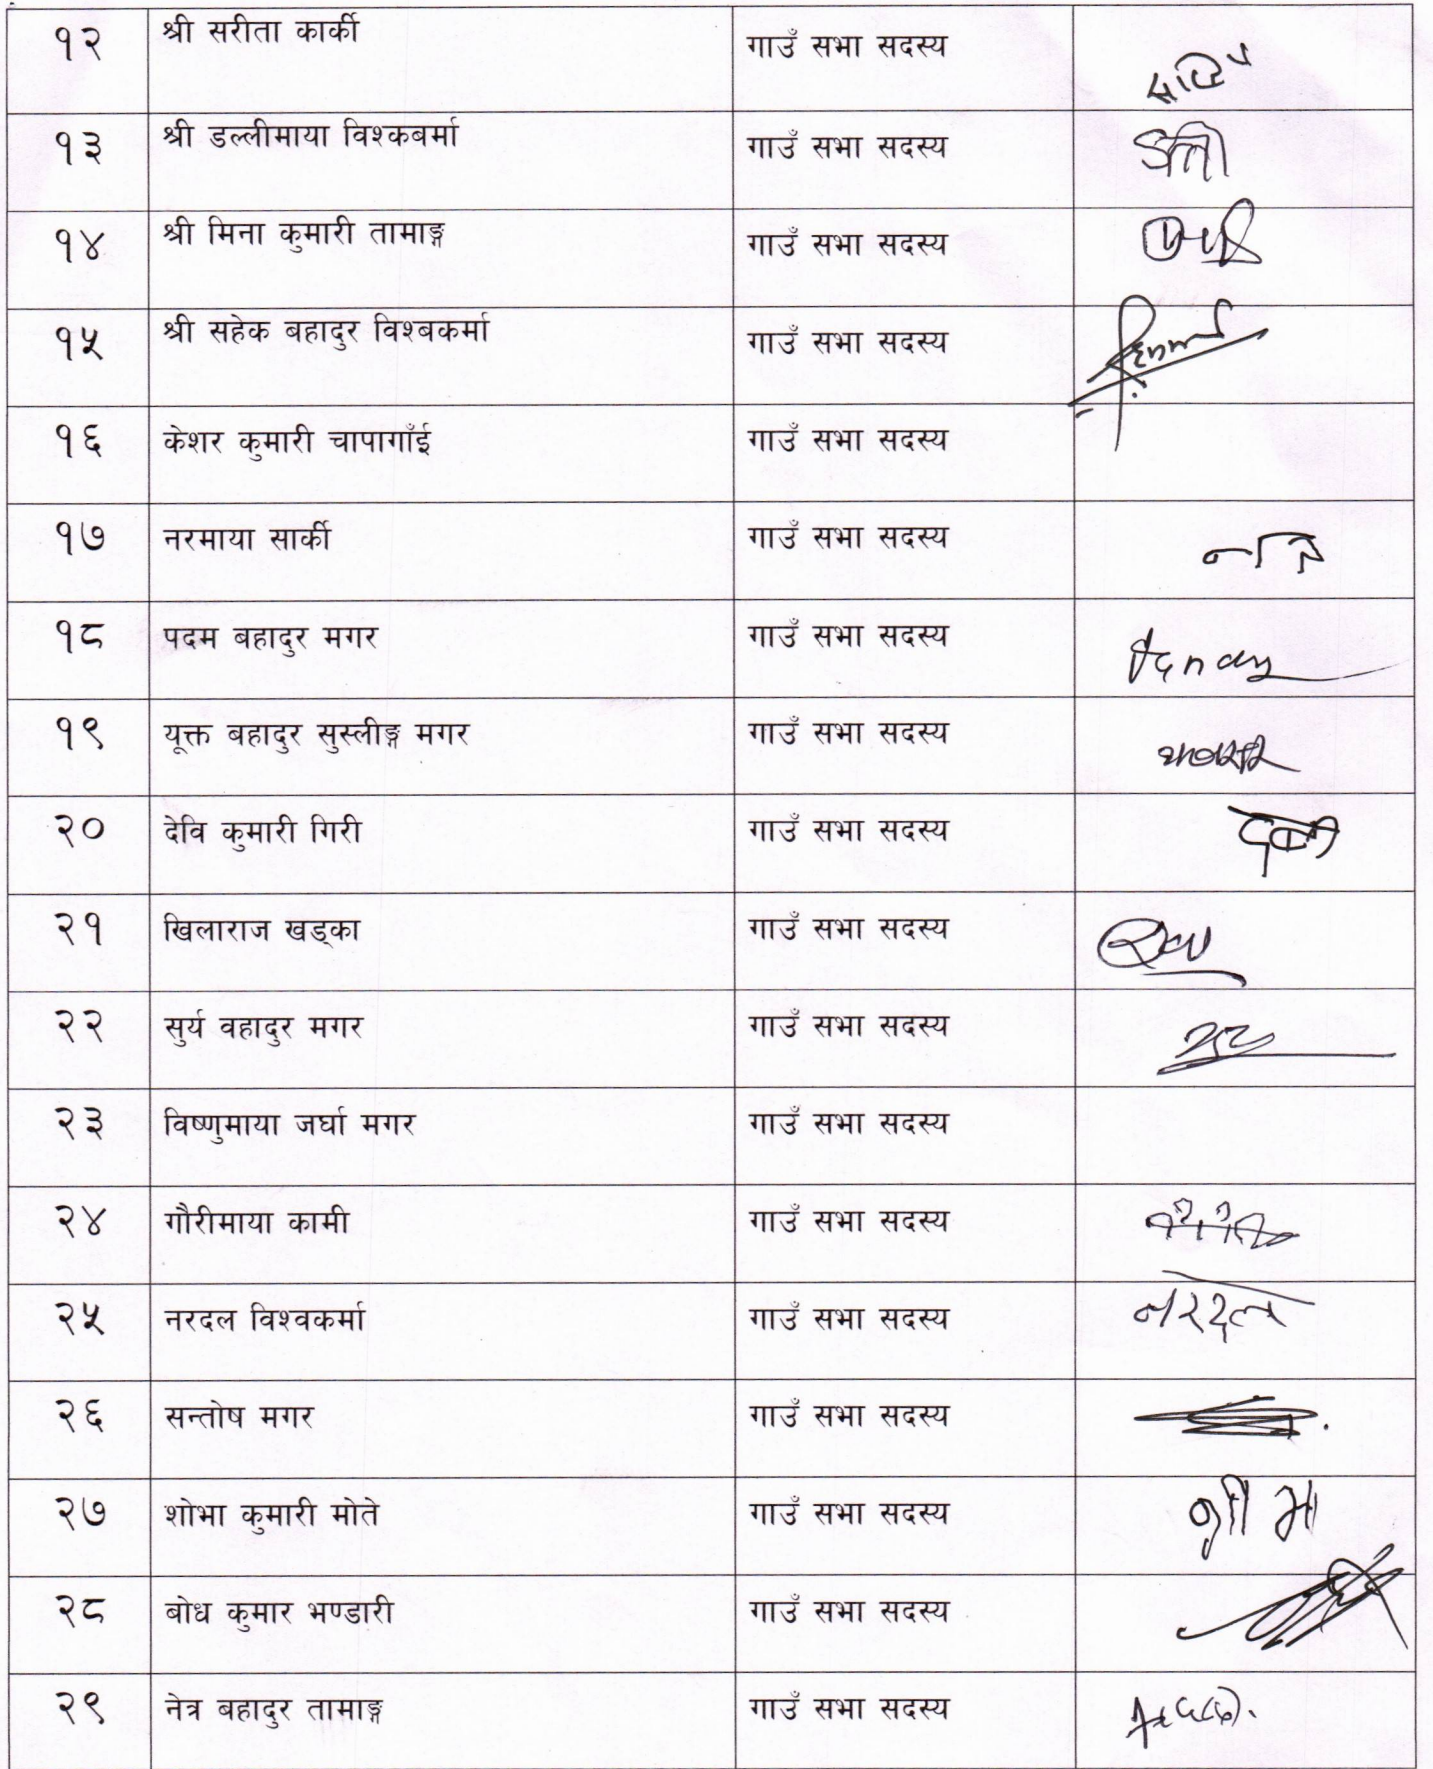 १२ श्री सरीता कार्की गाउँ सभा सदस्य
१३ श्री डल्लीमाया विश्कबर्मा गाउँ सभा सदस्य
१४ श्री मिना कुमारी तामाङ्ग गाउँ सभा सदस्य
१५ श्री सहेक बहादुर विश्बकर्मा गाउँ सभा सदस्य
१६ केशर कुमारी चापागाँई गाउँ सभा सदस्य
१७ नरमाया सार्की गाउँ सभा सदस्य
१८ पदम बहादुर मगर गाउँ सभा सदस्य
१९ यूक्त बहादुर सुस्लीङ्ग मगर गाउँ सभा सदस्य
२० देवि कुमारी गिरी गाउँ सभा सदस्य
२१ खिलाराज खड्का गाउँ सभा सदस्य
२२ सुर्य वहादुर मगर गाउँ सभा सदस्य
२३ विष्णुमाया जर्घा मगर गाउँ सभा सदस्य
२४ गौरीमाया कामी गाउँ सभा सदस्य
२५ नरदल विश्वकर्मा गाउँ सभा सदस्य नरदल
२६ सन्तोष मगर गाउँ सभा सदस्य
२७ शोभा कुमारी मोते गाउँ सभा सदस्य
२८ बोध कुमार भण्डारी गाउँ सभा सदस्य
२९ नेत्र बहादुर तामाङ्ग गाउँ सभा सदस्य